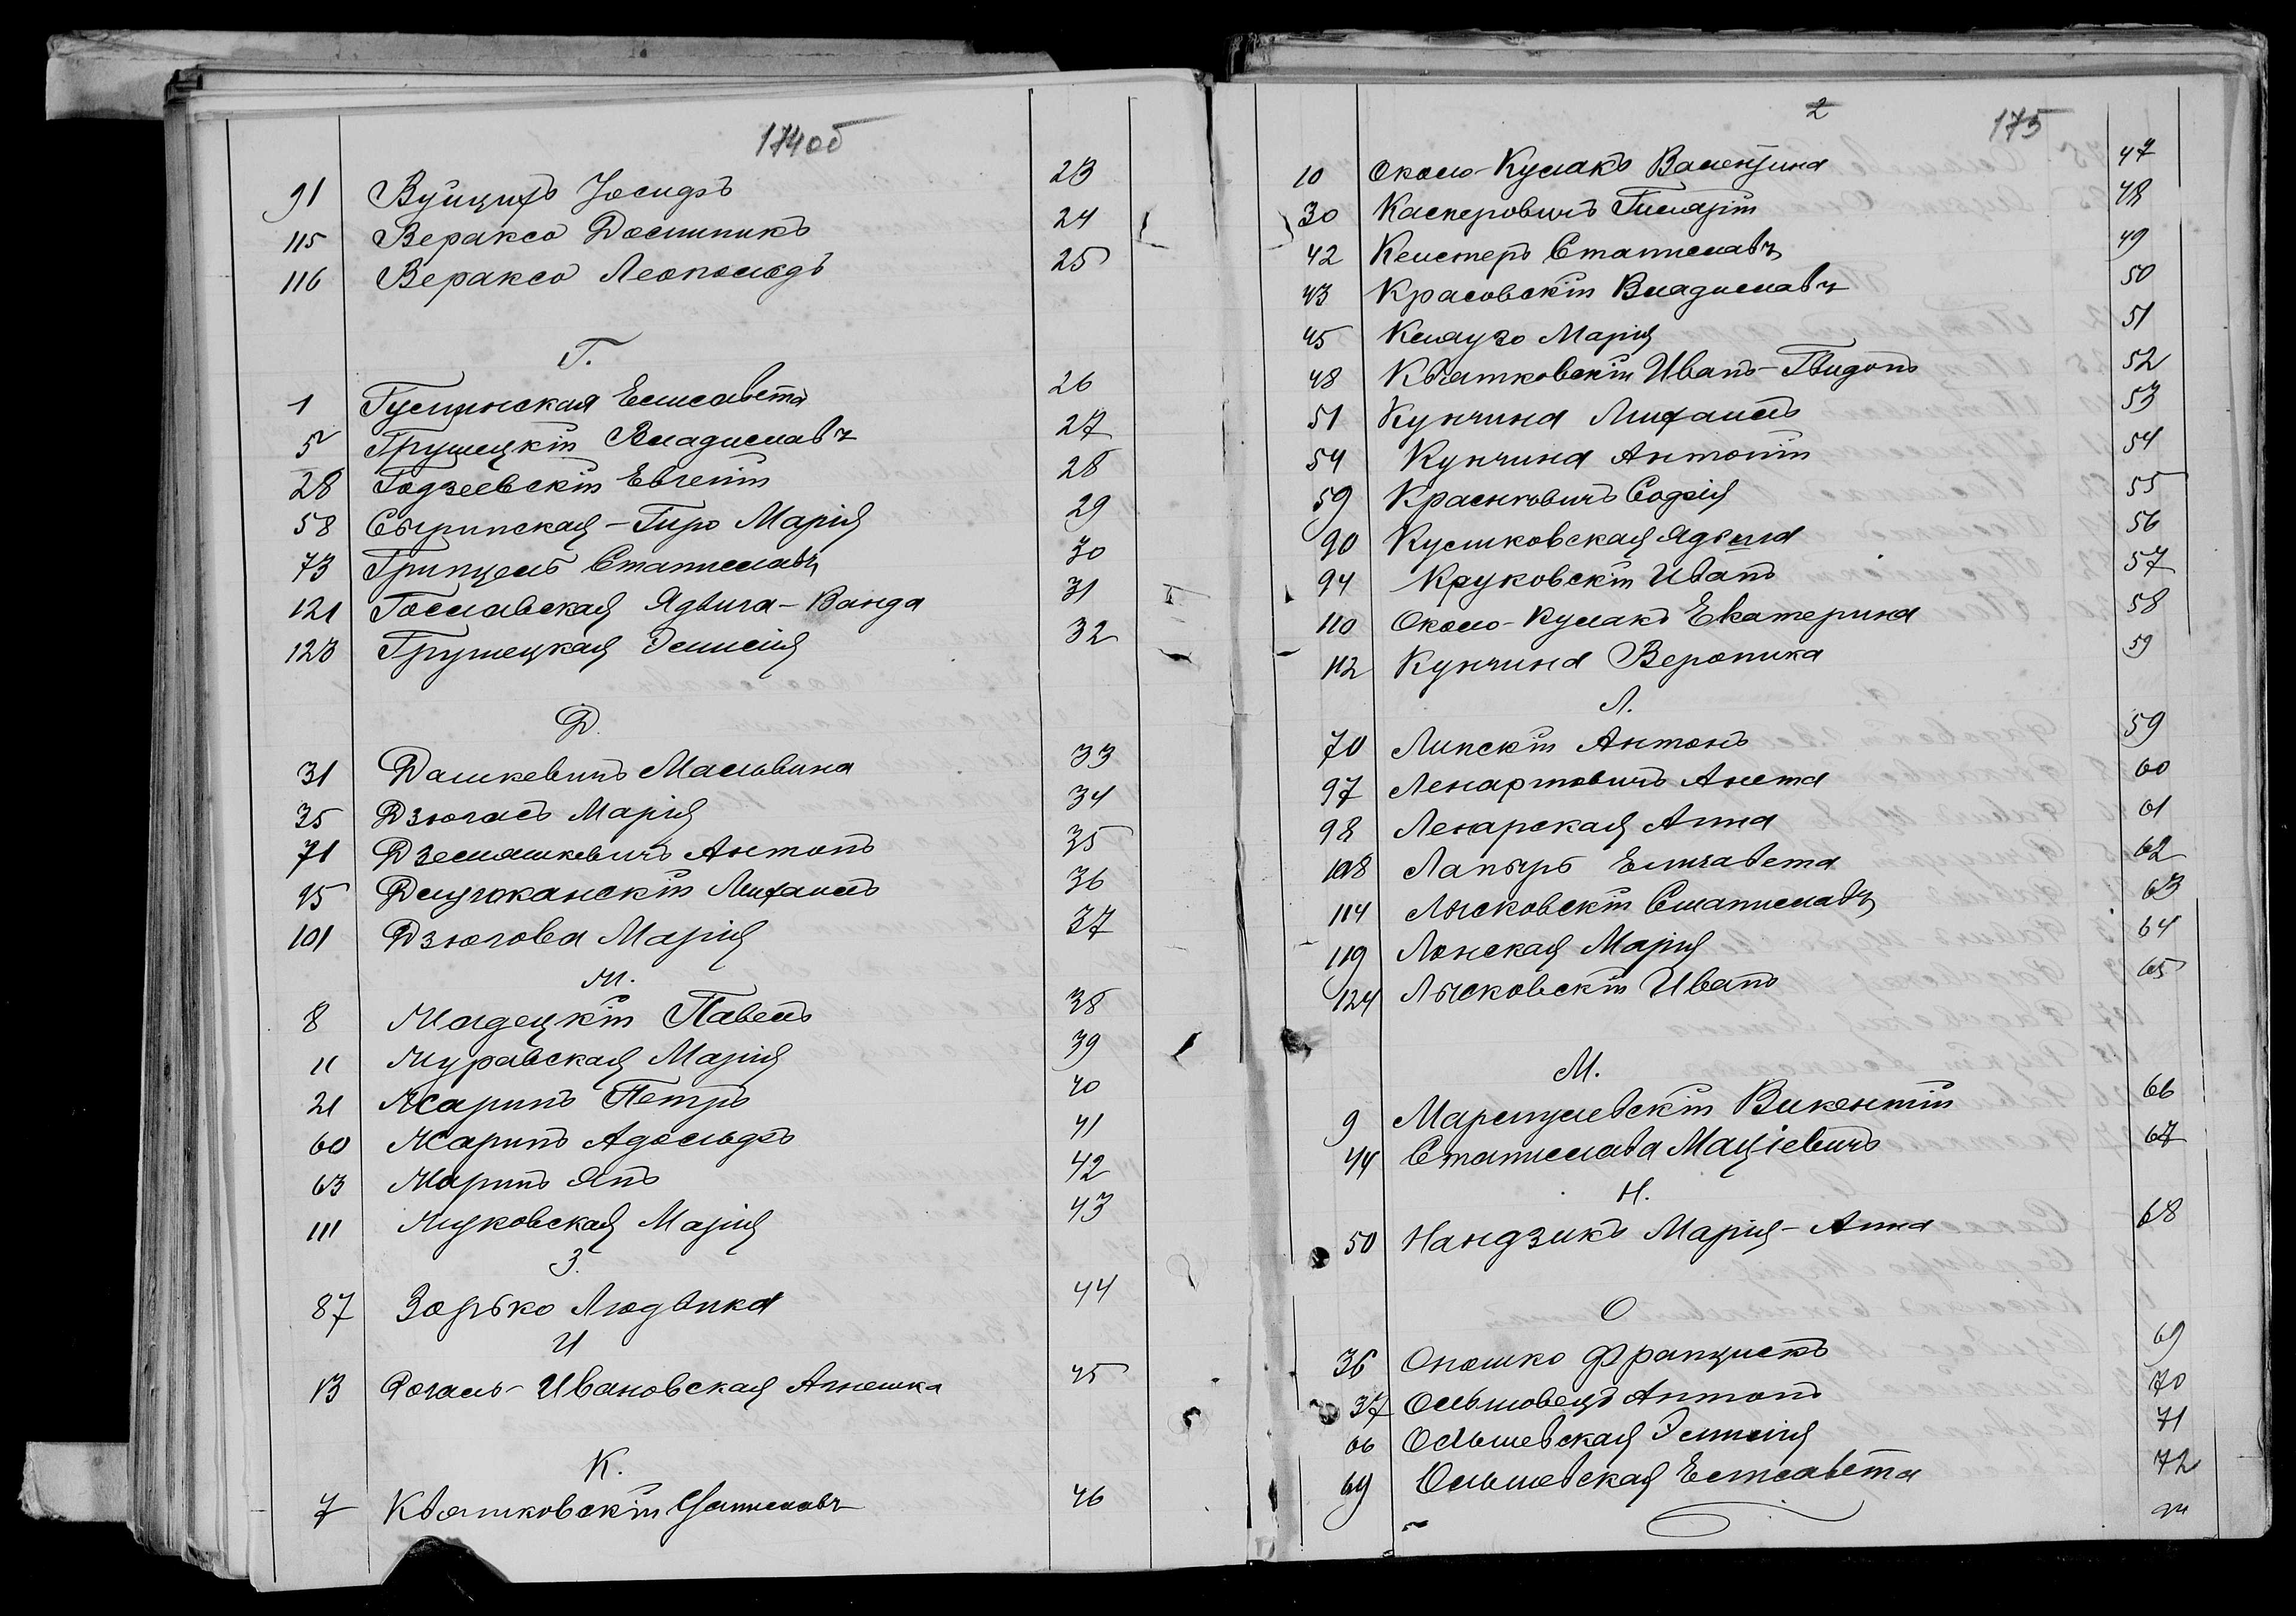 174об
91 Вуйцикъ Іосифъ 23
115 Вераксо Доминикъ 24
116 Вераксо Леопольдъ 25
Г.
1 Гусцинская Елисавета 26
5 Грушецкій Владиславъ 27
28 Годзеевскій Евгеній 28
58 Сырипская-Гиро Марія 29
73 Гринцель Станиславъ 30
121 Гославская Ядвига-Ванда 31
123 Грушецкая Эмилія 32
Д.
31 Дашкевичъ Мальвина 33
35 Дзюгасъ Марія 34
71 Дземяшкевичъ Антонъ 35
95 Длужканскій Михаилъ 36
101 Дзюгова Марія 37
Ж.
8 Жадецкій Павелъ 38
11 Журавская Марія 39
21 Жаринъ Петръ 40
60 Жаринъ Адольфъ 41
63 Жаринъ Янъ 42
111 Жуковская Марія 43
З.
87 Зорько Людвика 44
И
13 Рогаль-Ивановская Агнешка 45
К.
7 Квятковскій Станиславъ 46
2
175
10 Около-Кулакъ Валентина 47
30 Касперовичъ Гиларій 48
42 Кельнеръ Станиславъ 49
43 Красовскій Владиславъ 50
45 Клаузо Марія 51
48 Квятковскій Иванъ-Гвидонъ 52
51 Кунчина Михаилъ 53
54 Кунчина Антоній 54
59 Красневичъ Софія 55
90 Кулиховская Ядвига 56
94 Круковскій Иванъ 57
110 Около-Кулакъ Екатерина 58
112 Кунчина Вероника 59
Л.
70 Липскій Антонъ 59
97 Ленартовичъ Анета 60
98 Ленарская Анна 61
108 Лапыръ Елизавета 62
114 Лысковскій Станиславъ 63
119 Лонская Марія 64
124 Лысковскій Иванъ 65
М.
9 Марцулевскій Викентій 66
44 Станислава Мацѣевичъ 67
Н.
50 Нандзикъ Марія-Анна 68
О
36 Оношко Францискъ 69
37 Ольшовецъ Антонъ 70
66 Ольшевская Эмилія 71
69 Ольшевская Елисавета 72